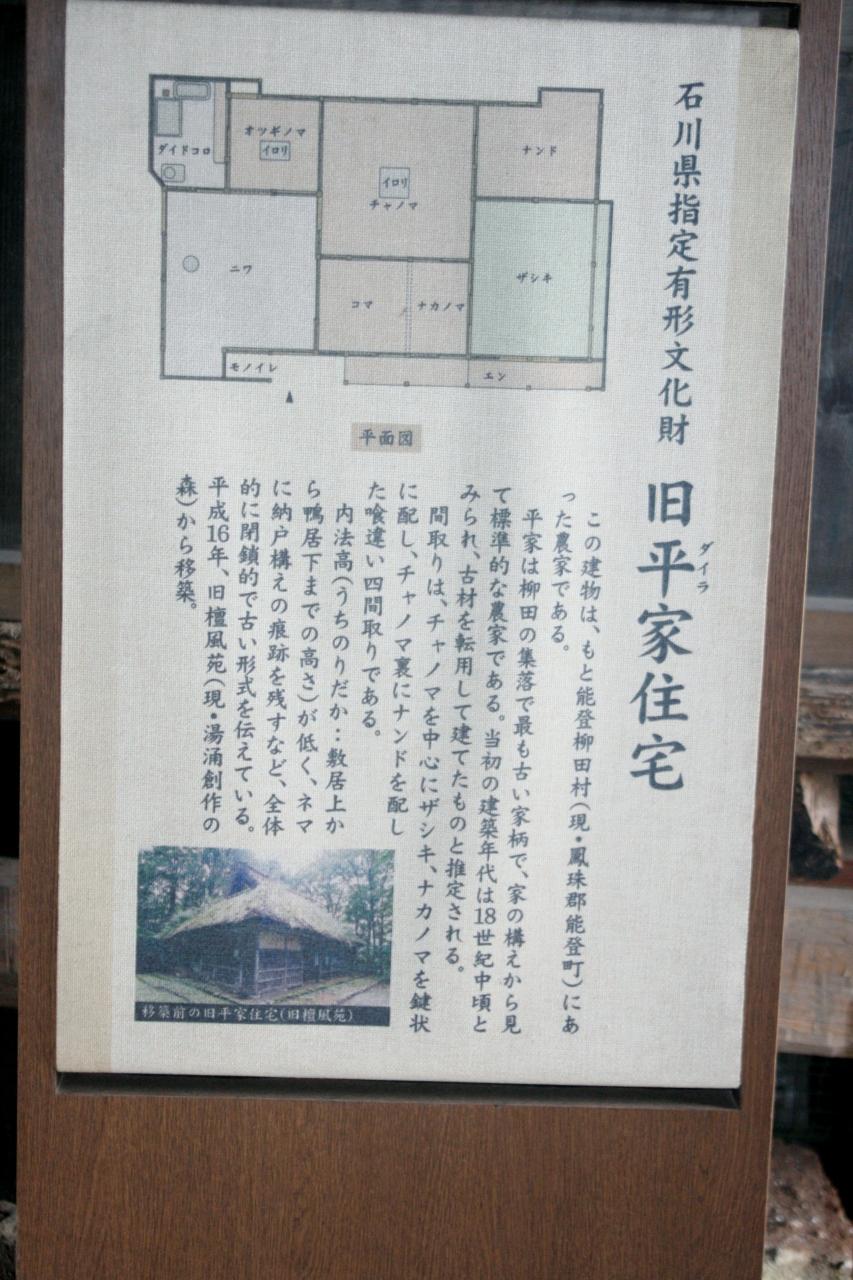 石川県指定有形文化財
旧平家住宅
ダイラ
この建物は、もと能登柳田村(現・鳳珠郡能登町)にあ
った農家である。
平家は柳田の集落で最も古い家柄で、家の構えから見
て標準的な農家である。当初の建築年代は18世紀中頃と
みられ、古材を転用して建てたものと推定される。
間取りは、チャノマを中心にザシキ、ナカノマを鍵状
に配し、チャノマ裏にナンドを配し
た喰違い四間取りである。
内法高(うちのりだか:敷居上か
ら鴨居下までの高さ)が低く、ネマ
に納戸構えの痕跡を残すなど、全体
的に閉鎖的で古い形式を伝えている。
平成16年、旧檀風苑(現・湯涌創作の
森)から移築。
ダイドコロ
オツギノマ
イロリ
イロリ
チャノマ
ナンド
ニワ
コマ
ナカノマ
ザシキ
モノイレ
エン
平面図
移築前の旧平家住宅(旧檀風苑)